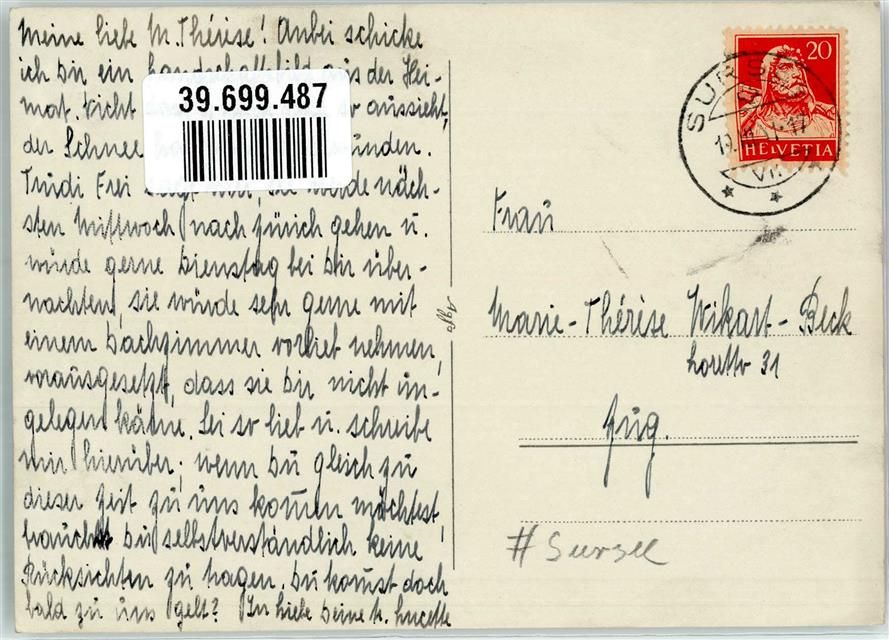 Meine liebe M. Thérèse! Anbei schicke
ich Dir ein Landschaftsbild aus der Hei-
mat. Nicht so aussieht,
der Schnee
Trudi Frei sagt mir, sie werde näch-
sten Mittwoch nach Zürich gehen u.
würde gerne Dienstag bei Dir über-
nachten, sie würde sehr gerne mit
einem Dachzimmer vorliet nehmen,
vorausgesetzt, dass sie Dir nicht un-
gelegen käme. Sei so lieb u. schreibe
mir hierüber; wenn Du gleich zu
dieser Zeit zu uns kommen möchtest,
brauchst Du selbstverständlich keine
Rücksichten zu tragen. Du komst doch
bald zu uns gelt? In Liebe Deine tr. Lucette
39.699.487
20
HELVETIA
SURSEE
Frau
Marie-Thérèse Wikart-Beck
Loretto 31
Zug.
# Sursee